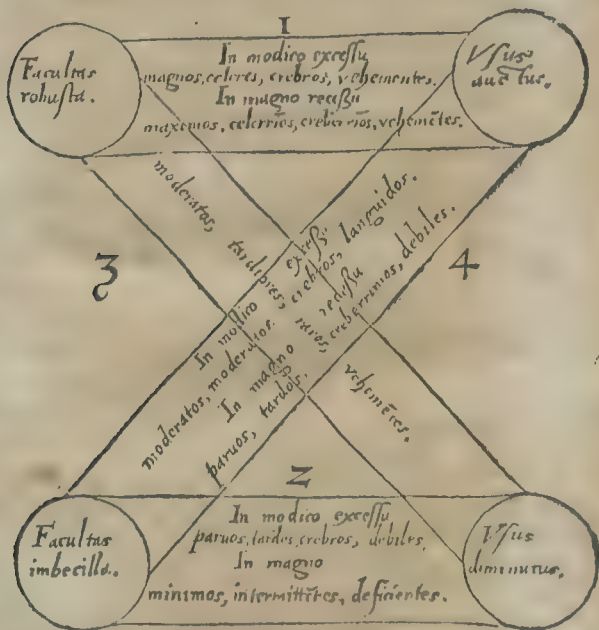 1
Facultas
robusta.
In modico excessu
magnos, celeres, crebros, vehementes.
In magno recessu
maximos, celerrios, creberrios, vehemẽtes.
Vsus
auctus.
moderatos, tardiores, raros, vehemẽtes.
3
4
In modico excessu
moderatos, moderatos. crebros, languidos.
In magno recessu
paruos, tardos. creberrimos, debiles.
2
Facultas
imbecilla.
In modico excessu
paruos, tardos, crebros, debiles.
In magno
minimos, intermittẽtes, deficientes.
Vsus
diminutus.